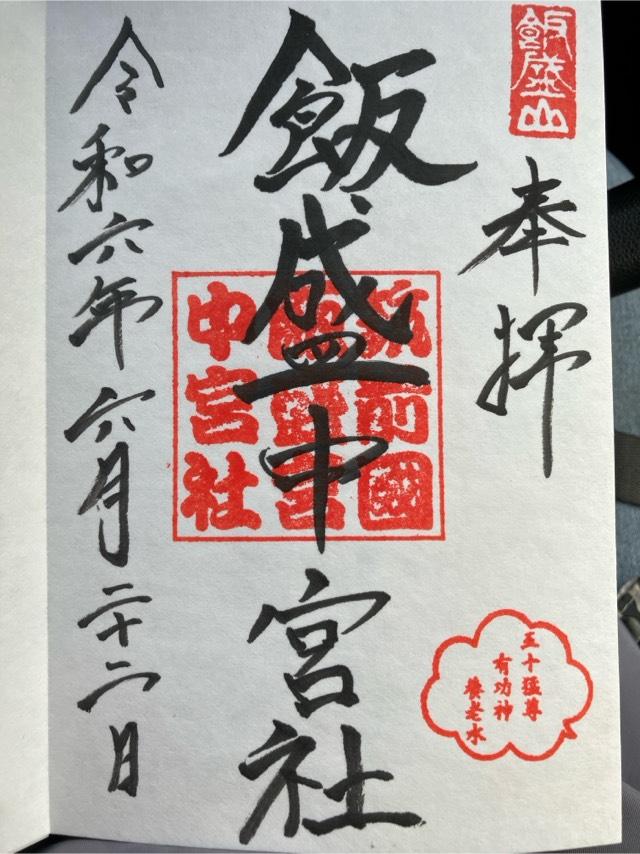 飯盛山
奉拝
飯盛中宮社
筑前國
飯盛宮
中宮社
五十猛尊
有功神
養老水
令和六年六月二十二日